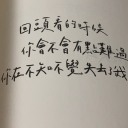 回頭看的時候
你會不會有點難過
你在不知不覺失去了我